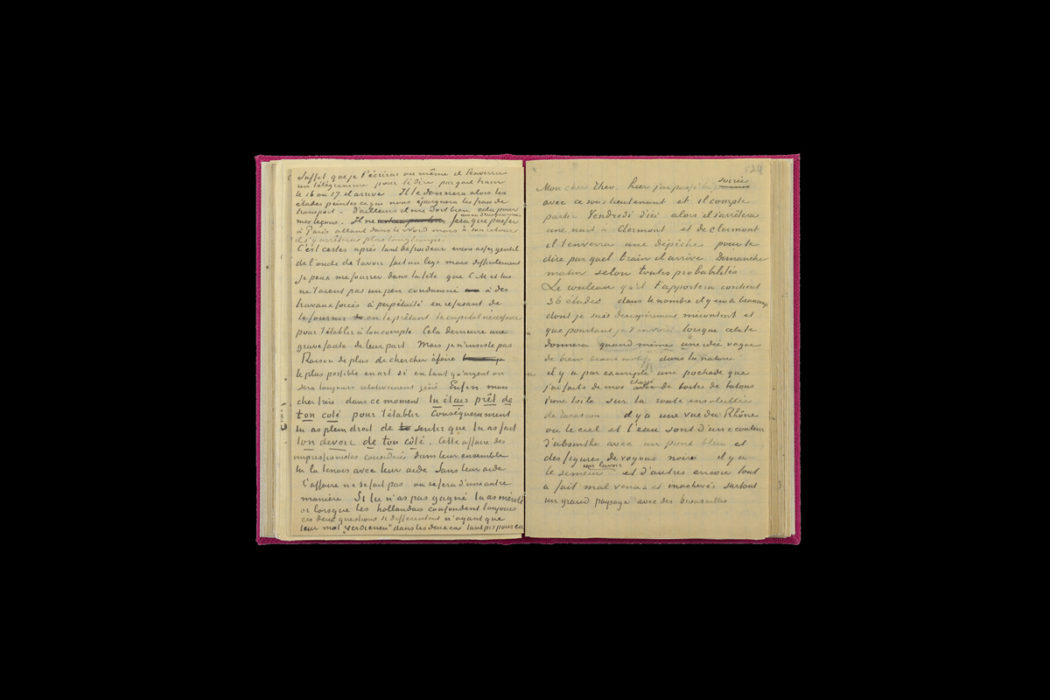 Suffit que je t'écrive ou même t'envoie
un télégramme pour te dire par quel train
le 16 ou 17 il arrive. Il te donnera alors les
études peintes ce qui nous épargnera les frais de
transport. D'ailleurs il me doit bien cela pour
mes leçons. Il ne fera que passer
à Paris allant dans le Nord mais à son retour
il y arrêtera plus longtemps.
C'est certes après tant de froideur envers assez gentil
de l'oncle de t'avoir fait un legs mais difficilement
je peux me fourrer dans la tête que C M et lui
ne t'aient pas un peu condamné à des
travaux forcés à perpétuité en refusant de
te fournir en te prêtant le capital nécessaire
pour t'établir à ton compte. Cela demeure une
grave faute de leur part. Mais je n'insiste pas
Raison de plus de chercher à faire
le plus possible en art si en tant qu'argent on
sera toujours relativement gêné. Enfin mon
cher frère dans ce moment tu étais prêt de
ton côté pour t'établir Conséquemment
tu as plein droit de sentir que tu as fait
ton devoir de ton côté. Cette affaire des
impressionistes considérés dans leur ensemble
tu la tenais avec leur aide Sans leur aide
l'affaire ne se fait pas ou se fera d'une autre
manière Si tu n'as pas gagné tu as mérité
or lorsque les hollandais confondent toujours
ces deux questions si différentes n'ayant que
leur mot „verdienen" dans les deux cas tant pis pour eux
Mon cher Theo, hier j'ai passé la soirée
avec ce sous lieutenant et il compte
partir Vendredi d'ici alors il s'arrêtera
une nuit à Clermont et de Clermont
il t'enverra une dépêche pour te
dire par quel train il arrive. Dimanche
matin selon toutes probabilités
Le rouleau qu'il t'apportera contient
36 études dans le nombre il y en a beaucoup
dont je suis désespérément mécontent et
que pourtant je t'envoie lorsque cela te
donnera quand même une idée vague
de bien beaux motifs dans la nature
il y a par exemple une pochade que
j'ai faite de moi chargé de boites de batons
d'une toile sur la route ensoleillée
de Tarascon il y a une vue du Rhône
où le ciel et l'eau sont d'une couleur
d'absinthe avec un pont bleu et
des figures de voyous noirs il y a
le semeur un lavoir et d'autres encore tout
à fait mal venus et inachevés surtout
un grand paysage avec des broussailles